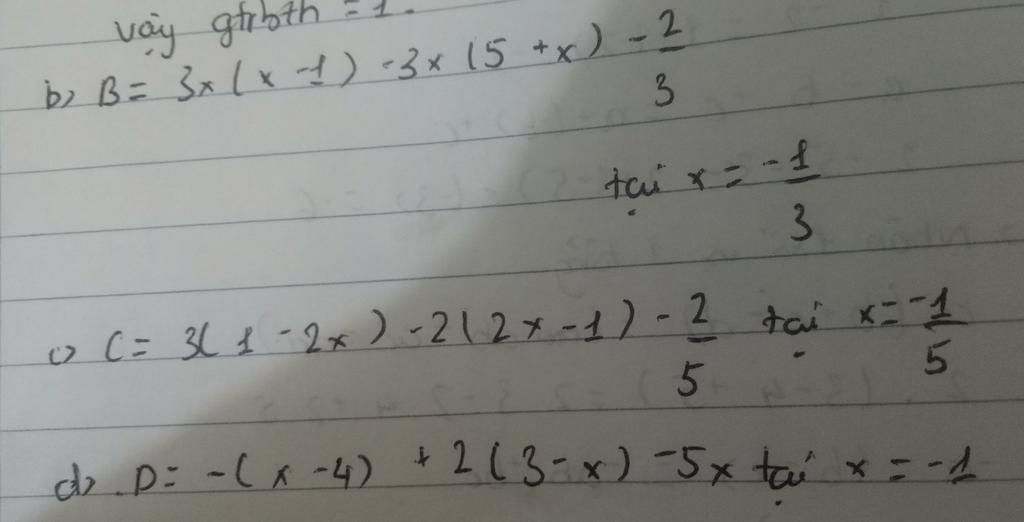 vậy gtrbth = 1.
b) B = 3x(x - 1) - 3x(5 + x) - 2/3
tại x = -1/3
c) C = 3(1 - 2x) - 2(2x - 1) - 2/5 tại x = -1/5
d) D = -(x - 4) + 2(3 - x) - 5x tại x = -1